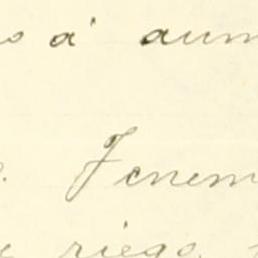 o á aum
. Tenem
e riego,